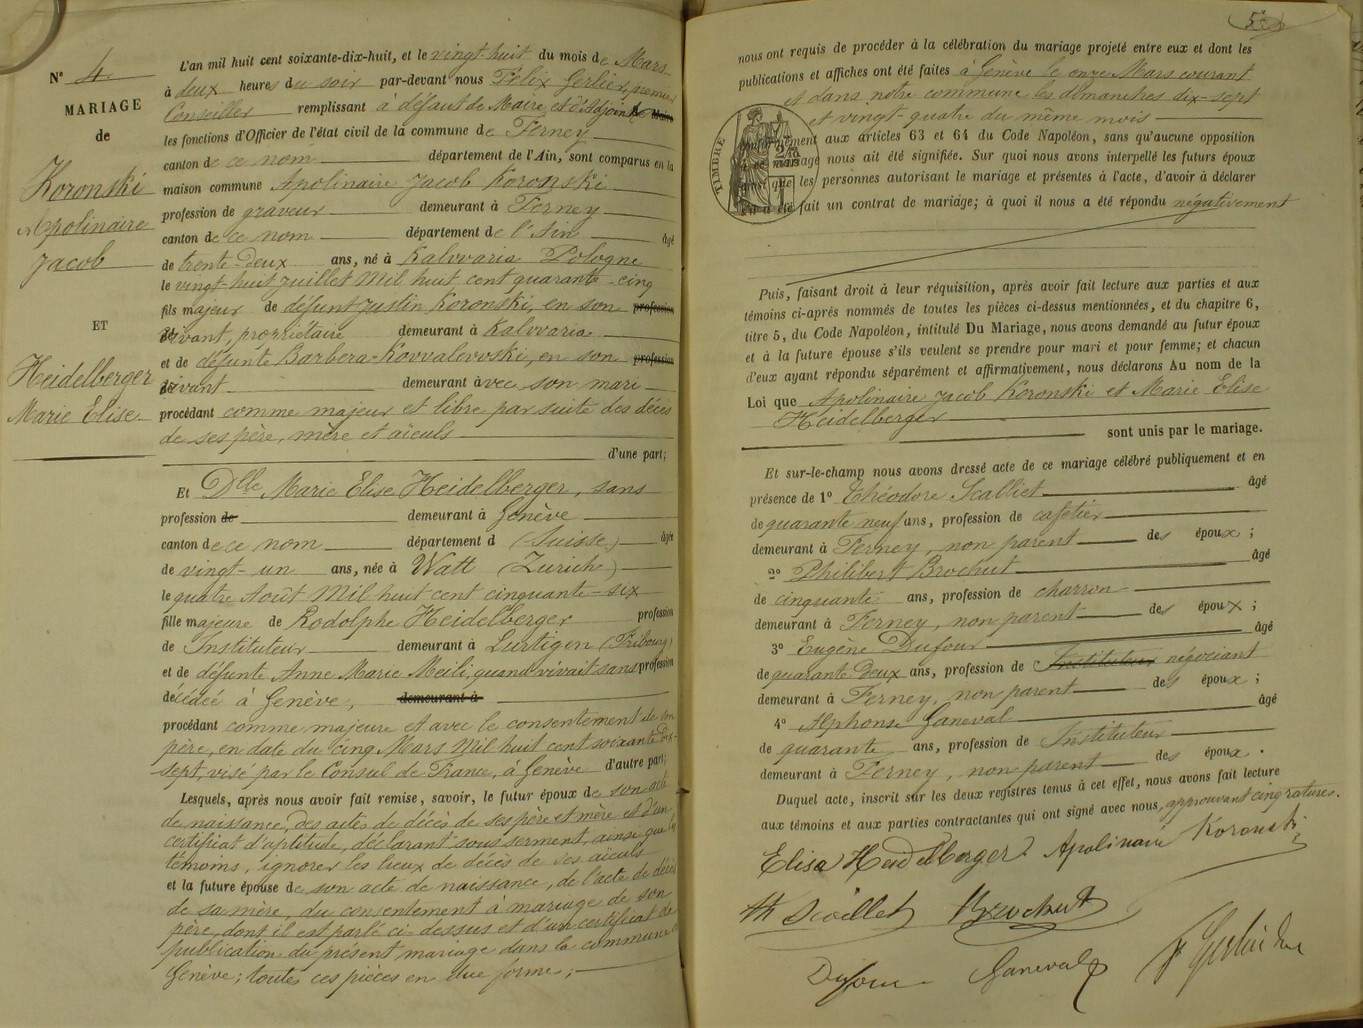 N° 4
MARIAGE
de
Koronski
Apolinaire
Jacob
ET
Heidelberger
Marie Elise
L'an mil huit cent soixante-dix-huit, et le vingt-huit du mois de Mars
à deux heures du soir par-devant nous Félix Gerlier, premier
Conseiller remplissant à défaut de Maire et d'Adjoint
les fonctions d'Officier de l'état civil de la commune de Ferney
canton de ce nom département de l'Ain, sont comparus en la
maison commune Apolinaire Jacob Koronski
profession de graveur demeurant à Ferney
canton de ce nom département de l'Ain âgé
de trente-deux ans, né à Kalvvaria Pologne
le vingt-huit juillet Mil huit cent quarante-cinq
fils majeur de défunt Justin Koronski, en son profession
vivant, propriétaire demeurant à Kalvvaria
et de défunte Barbera Kovvalevvski, en son profession
vivant demeurant avec son mari
procédant comme majeur et libre par suite des décès
de ses père, mère et aïeuls
d'une part;
Et Dlle Marie Elise Heidelberger, sans
profession de demeurant à Genève
canton de ce nom département d (Suisse) âgée
de vingt-un ans, née à Watt (Zurich)
le quatre Août Mil huit cent cinquante-six
fille majeure de Rodolphe Heidelberger profession
de Instituteur demeurant à Lurtigen (Fribourg)
et de défunte Anne Marie Meili, quand vivait sans profession
décédée à Genève, demeurant à
procédant comme majeure et avec le consentement de son
père, en date du cinq Mars Mil huit cent soixante-dix-
sept, visé par le Consul de France, à Genève d'autre part;
Lesquels, après nous avoir fait remise, savoir, le futur époux de son acte
de naissance, des actes de décès de ses père et mère et d'un
certificat d'aptitude, déclarant sous serment, ainsi que les
témoins, ignorer les lieux de décès de ses aïeuls
et la future épouse de son acte de naissance, de l'acte de décès
de sa mère, du consentement à mariage de son
père, dont il est parlé ci-dessus et d'un certificat de
publication du présent mariage dans la commune de
Genève; toutes ces pièces en due forme;
5
nous ont requis de procéder à la célébration du mariage projeté entre eux et dont les
publications et affiches ont été faites à Genève le onze Mars courant
et dans notre commune les dimanches dix-sept
et vingt-quatre du même mois
TIMBRE
conformément aux articles 63 et 64 du Code Napoléon, sans qu'aucune opposition
à ce mariage nous ait été signifiée. Sur quoi nous avons interpellé les futurs époux
ainsi que les personnes autorisant le mariage et présentes à l'acte, d'avoir à déclarer
s'il a été fait un contrat de mariage; à quoi il nous a été répondu négativement
Puis, faisant droit à leur réquisition, après avoir fait lecture aux parties et aux
témoins ci-après nommés de toutes les pièces ci-dessus mentionnées, et du chapitre 6,
titre 5, du Code Napoléon, intitulé Du Mariage, nous avons demandé au futur époux
et à la future épouse s'ils veulent se prendre pour mari et pour femme; et chacun
d'eux ayant répondu séparément et affirmativement, nous déclarons Au nom de la
Loi que Apolinaire Jacob Koronski et Marie Elise
Heidelberger
sont unis par le mariage.
Et sur-le-champ nous avons dressé acte de ce mariage célébré publiquement et en
présence de 1° Théodore Scalliet âgé
de quarante neuf ans, profession de cafetier
demeurant à Ferney, non parent des époux;
2° Philibert Brochut âgé
de cinquante ans, profession de charron
demeurant à Ferney, non parent des époux;
3° Eugène Dufour âgé
de quarante-deux ans, profession de Instituteur négociant
demeurant à Ferney, non parent des époux;
4° Alphonse Ganeval âgé
de quarante ans, profession de Instituteur
demeurant à Ferney, non parent des époux.
Duquel acte, inscrit sur les deux registres tenus à cet effet, nous avons fait lecture
aux témoins et aux parties contractantes qui ont signé avec nous, approuvant cinq ratures.
Elisa Heidelberger Apolinaire Koronski
th Scalliet Brochut
Dufour Ganeval F Gerlier